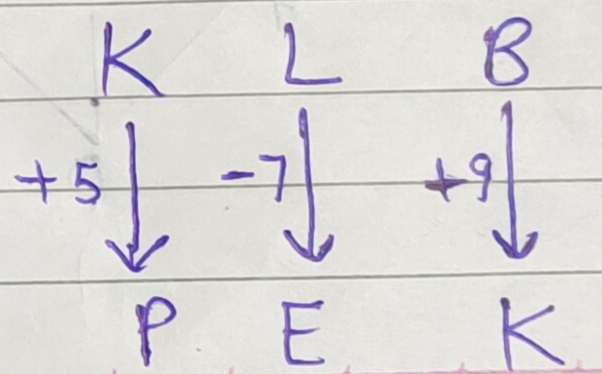 K L B
+5 -7 +9
P E K